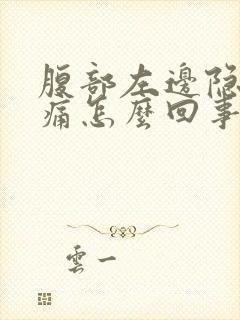 腹部左邊隐
痛怎麼回事
雲一